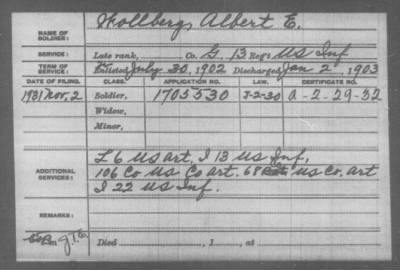 NAME OF SOLDIER: Wollberg, Albert E.
SERVICE: Late rank, Co. G, 13 Reg't US Inf
TERM OF SERVICE: Enlisted July 30, 1902 Discharged Jan 2, 1903
DATE OF FILING. CLASS. APPLICATION NO. LAW. CERTIFICATE NO.
1931 Nov. 2 Soldier, 1705530 J-2-30 a-2-29-32
Widow,
Minor,
ADDITIONAL SERVICES: L 6 US art, I 13 US Inf,
106 Co US Co art. 68 US Co. art
I 22 US Inf.
REMARKS:
Died , 1 , at